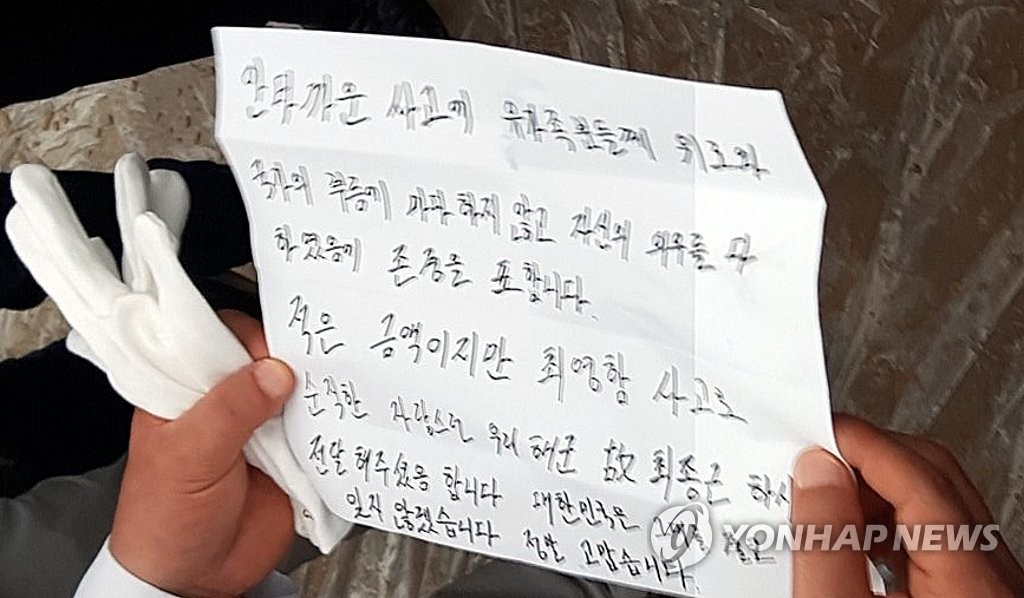 안타까운 싸고에 유가족분들께 위로와
국가의 부름에 마다하지 않고 자신의 의무를 다
하였음에 존중을 표합니다.
적은 금액이지만 최영함 사고로
순직한 자랑스런 우리 해군 故 최종근 하사
전달해주셨음 합니다 대한민국은
잊지 않겠습니다 정말 고맙습니다.
YONHAP NEWS